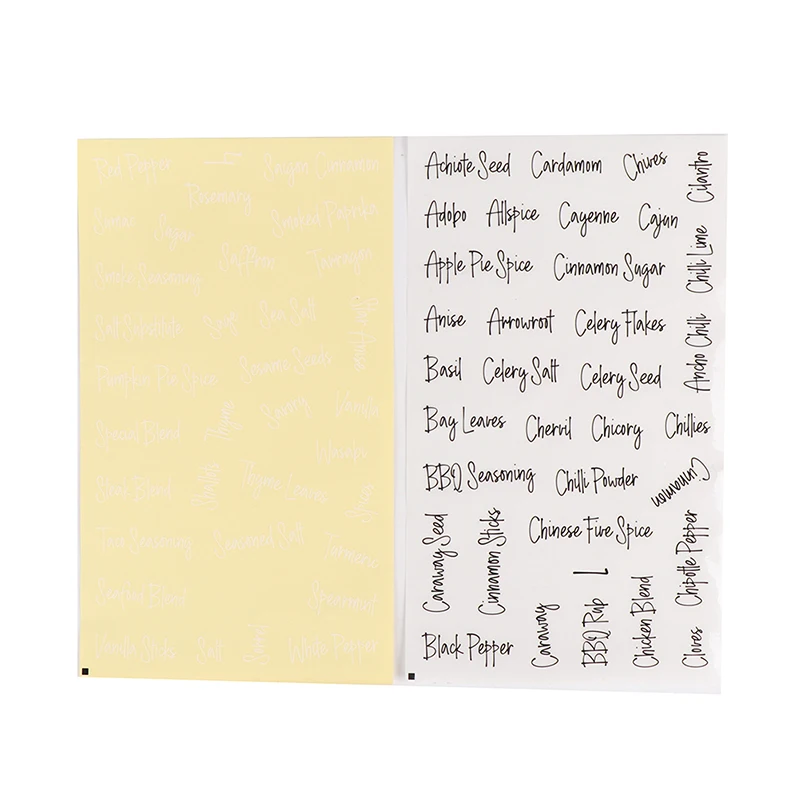 Red Pepper
Saigon Cinnamon
Rosemary
Smoked Paprika
Sugar
Saffron
Tarragon
Smoke Seasoning
Salt Substitute
Sage
Sea Salt
Star Anise
Sesame Seeds
Pumpkin Pie Spice
Thyme
Savory
Vanilla
Special Blend
Wasabi
Steak Blend
Shallots
Thyme Leaves
Spice
Taco Seasoning
Seasoned Salt
Turmeric
Seafood Blend
Spearmint
Vanilla Sticks
Salt
Sorrel
White Pepper
Achiote Seed Cardamom Chives
Cilantro
Adobo Allspice Cayenne Cajun
Apple Pie Spice Cinnamon Sugar
Chilli Lime
Anise Arrowroot Celery Flakes
Ancho Chilli
Basil Celery Salt Celery Seed
Bay Leaves Chervil Chicory Chillies
BBQ Seasoning Chilli Powder
Cinnamon
Caraway Seed
Cinnamon Sticks
Chinese Five Spice
Chipotle Pepper
L
Black Pepper
Caraway
BBQ Rub
Chicken Blend
Cloves